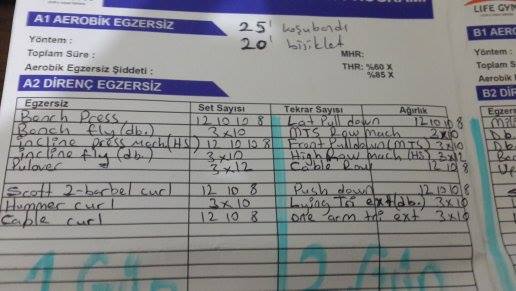 LIFE GYM
A1 AEROBİK EGZERSİZ
25' koşubandı
20' bisiklet
Yöntem :
Toplam Süre :
MHR:
Aerobik Egzersiz Şiddeti :
THR: %60 X
%85 X
A2 DİRENÇ EGZERSİZ
Egzersiz Set Sayısı Tekrar Sayısı Ağırlık
Bench Press 12 10 10 8 Lat Pull down 12 10 10 8
Bench fly (db.) 3x10 MTS Row mach 3x10
incline press Mach (HS) 12 10 10 8 Front Pulldown (MTS) 3x10
incline fly (db.) 3x10 High Row mach (HS) 3x12
Pulover 3x12 Cable Row 12 10 8
Scott Z-barbel curl 12 10 8 Push down 12 10 10 8
Hummer curl 3x10 Lying Tri ext (db.) 3x10
Cable curl 12 10 8 one arm tri ext 3x10
1. Gün 2. Gün
B1 AERO
Yöntem :
Toplam S
Aerobik
B2 Dİ
Egzersiz